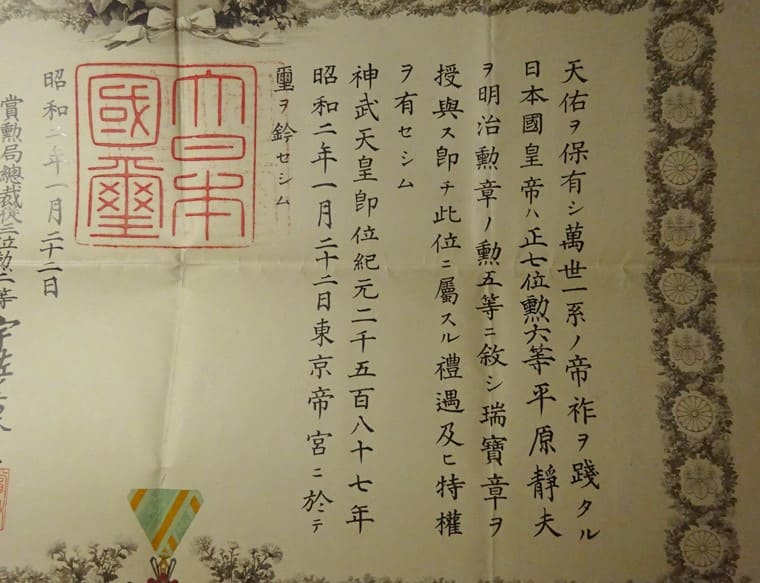 天佑ヲ保有シ萬世一系ノ帝祚ヲ踐タル
日本國皇帝ハ正七位勲六等平原靜夫
ヲ明治勲章ノ勲五等ニ敘シ瑞寶章ヲ
授與ス即チ此位ニ屬スル禮遇及ヒ特權
ヲ有セシム
神武天皇即位紀元二千五百八十七年
昭和二年一月二十二日東京帝宮ニ於テ
璽ヲ鈐セシム
大日本
國璽
昭和二年一月二十二日
賞勲局總裁從三位勲二等